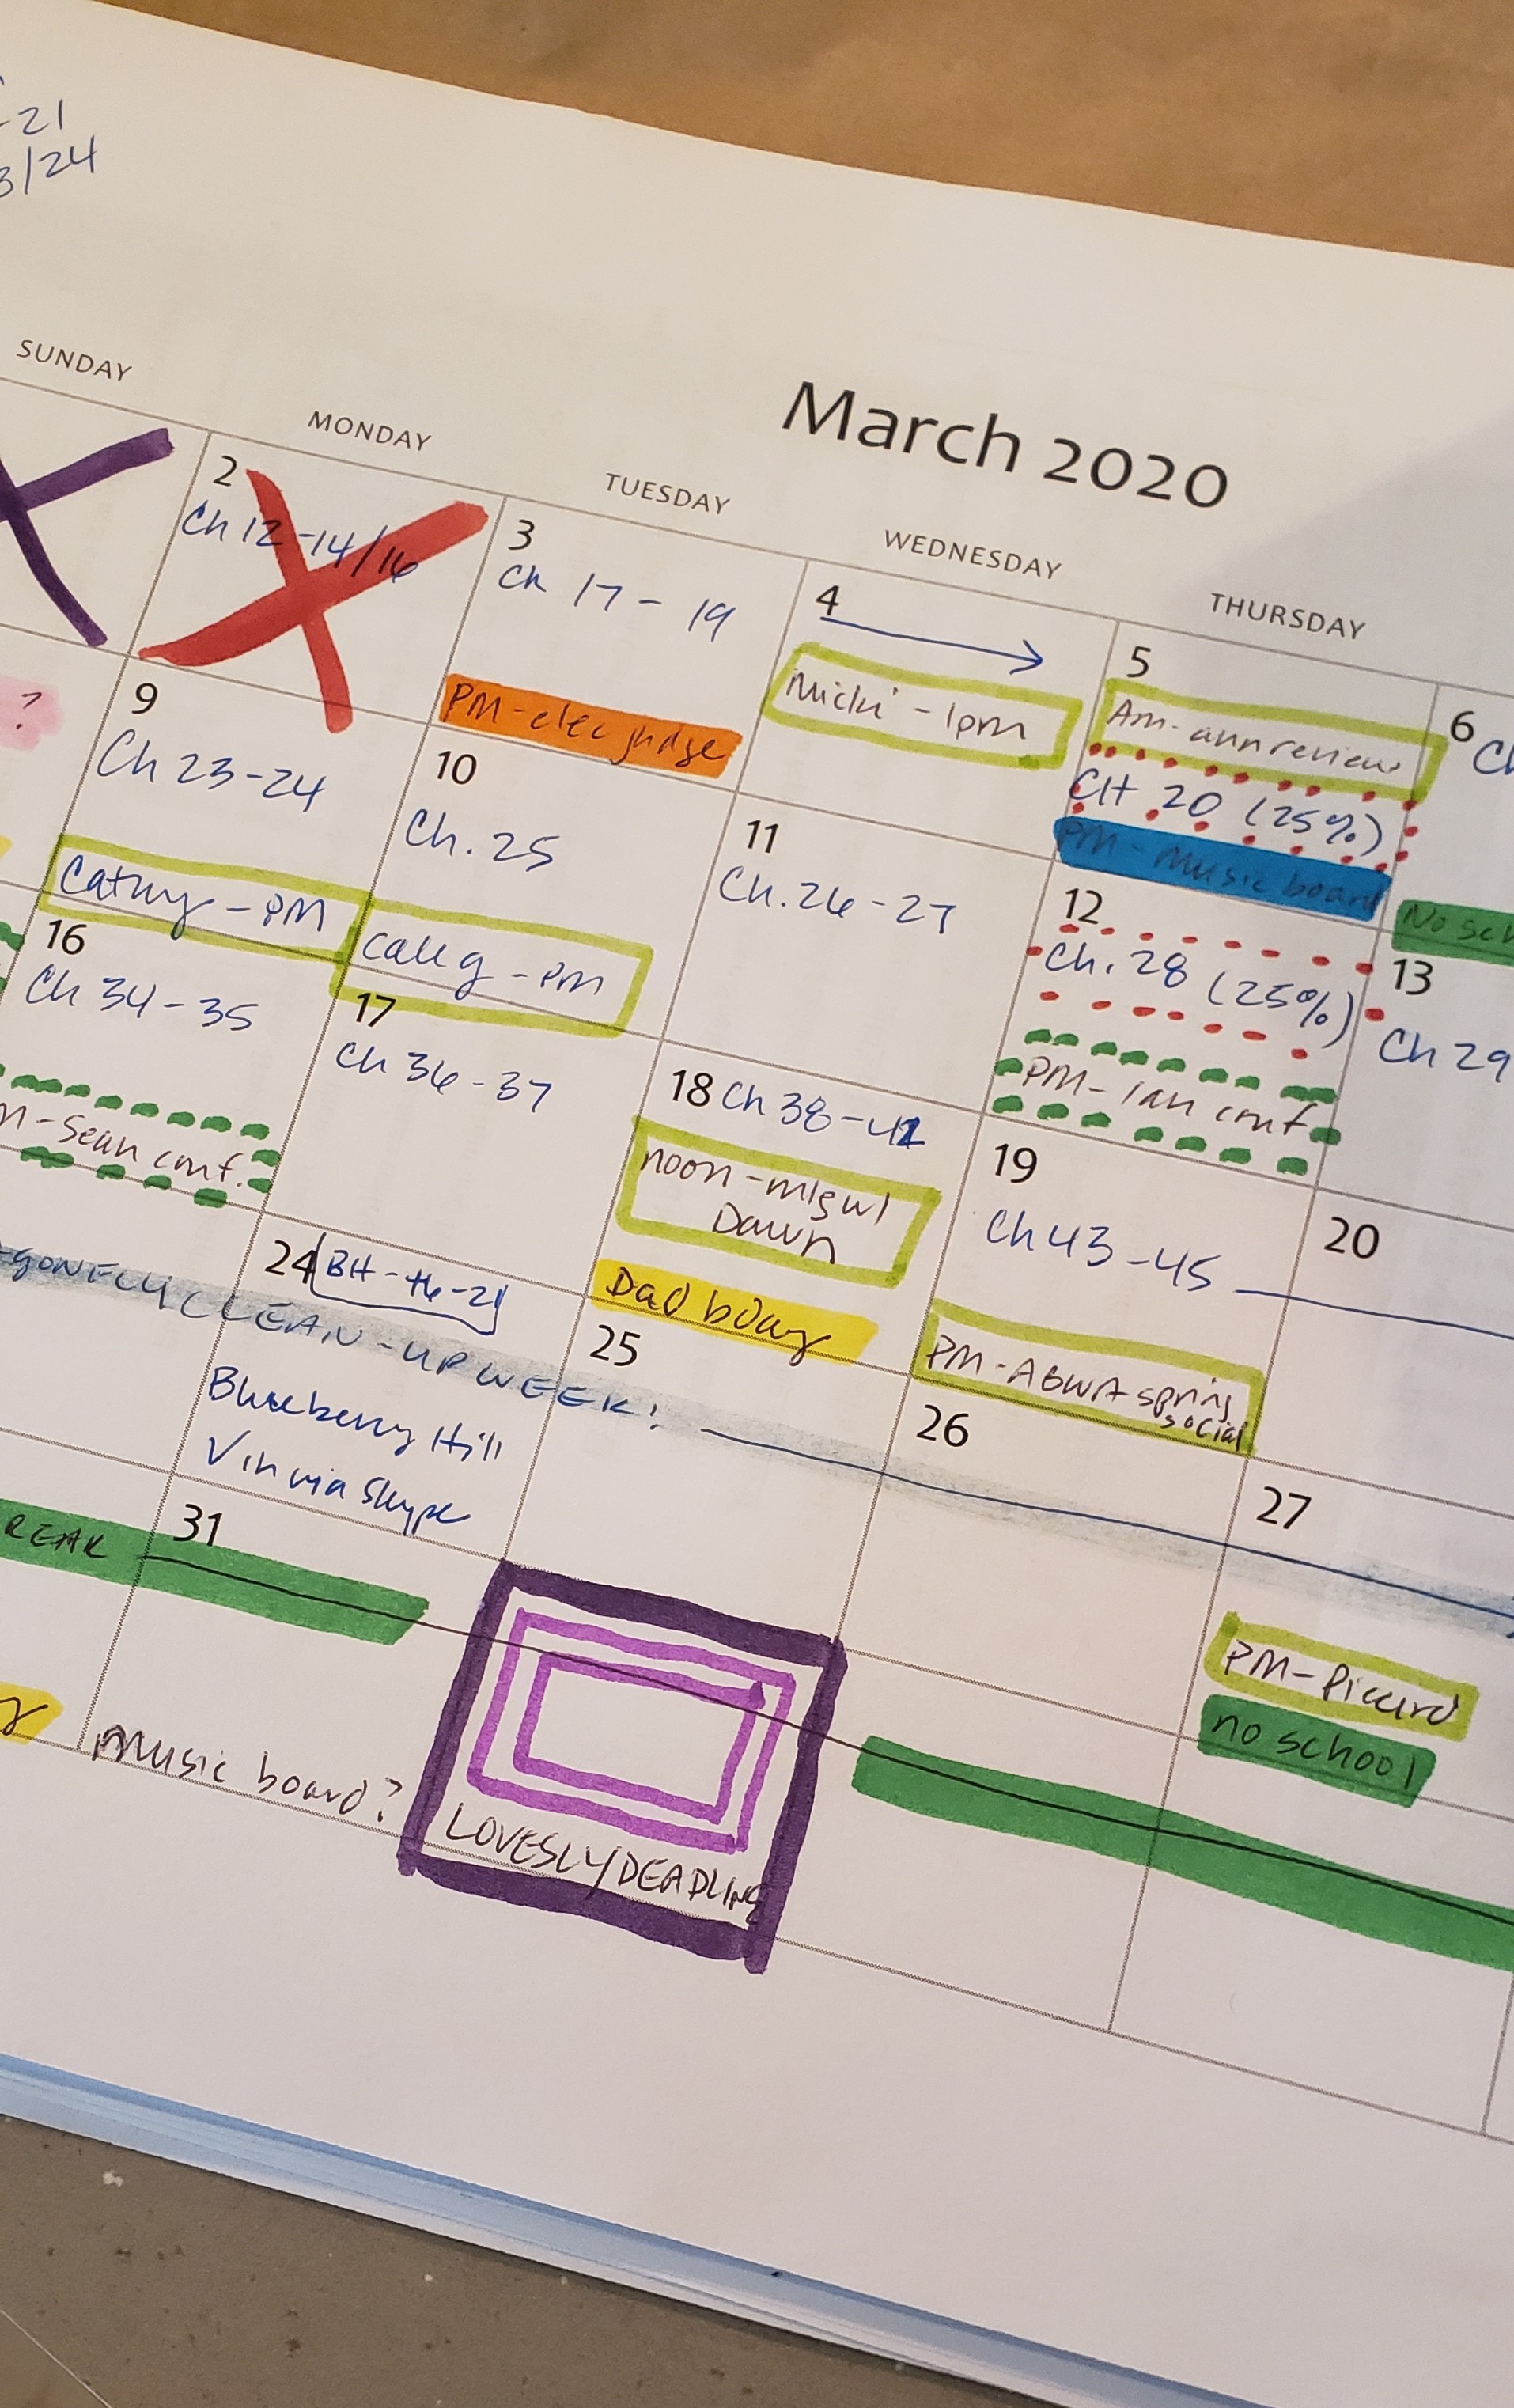 21
3/24
March 2020
SUNDAY
MONDAY
TUESDAY
WEDNESDAY
THURSDAY
2
Ch 12-14/16
3
Ch 17 - 19
PM-elec judge
4
Micki - 1pm
5
Am-ann review
CH 20 (25%)
PM - Music board
6
No sch
?
9
Ch 23-24
Cathy - PM
10
Ch. 25
Callig - PM
11
Ch. 26-27
12
Ch. 28 (25%)
PM- Ian conf
13
Ch 29
16
Ch 34-35
-Sean conf.
17
Ch 36-37
18 Ch 38-42
noon-
Dawn
Dad bday
19
Ch 43-45
PM-ABWA spring
social
20
CLEAN-UP WEEK!
24
Blueberry Hill
Vin via Skype
25
26
27
PM-Picard
no school
REAK
31
music board?
LOVESLY DEADLINE